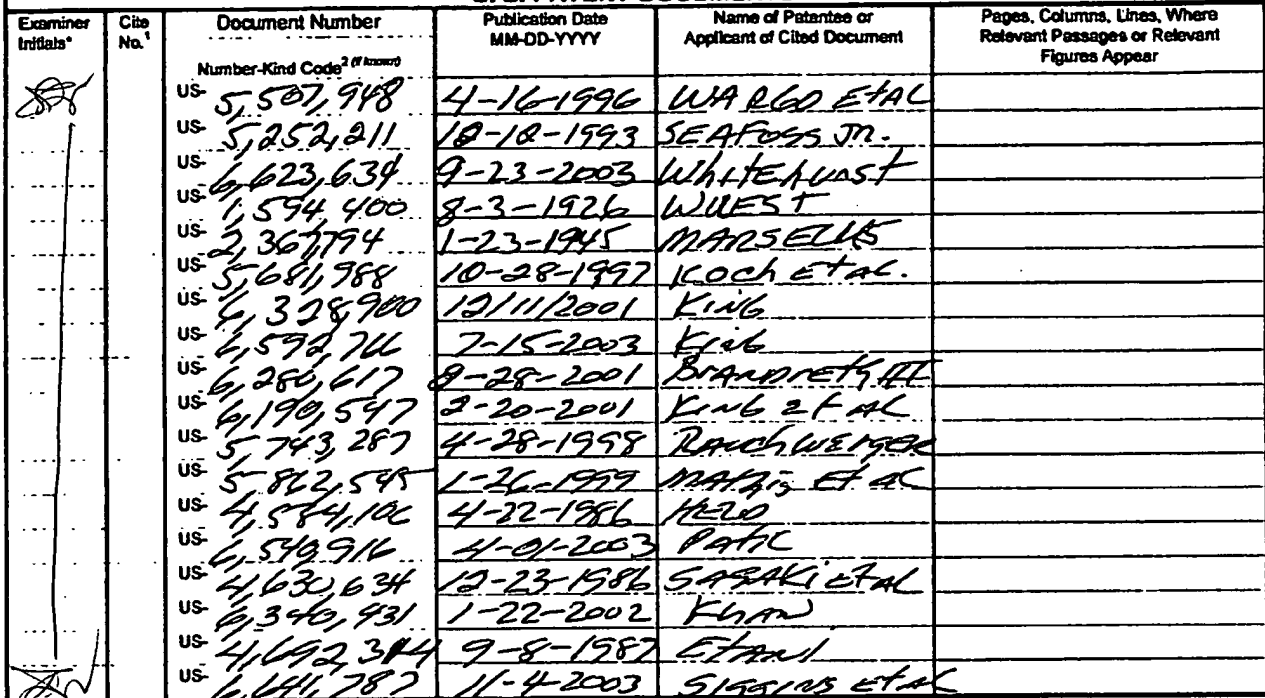 Examiner Initials*
Cite No.¹
Document Number
Number-Kind Code² (if known)
Publication Date MM-DD-YYYY
Name of Patentee or Applicant of Cited Document
Pages, Columns, Lines, Where Relevant Passages or Relevant Figures Appear
US- 5,507,948 4-16-1996 WARGO Et AL
US- 5,252,211 10-12-1993 SEAFOSS JR.
US- 6,623,634 9-23-2003 WhitEhurst
US- 1,594,400 8-3-1926 WUEST
US- 2,367,794 1-23-1945 MARSELLUS
US- 5,681,988 10-28-1997 Koch Et AL.
US- 6,328,900 12/11/2001 King
US- 6,592,766 7-15-2003 King
US- 6,280,617 8-28-2001 Brandreth III
US- 6,190,547 2-20-2001 King Et AL
US- 5,743,287 4-28-1998 Rauchwerger
US- 5,862,545 1-26-1999 Mathis Et AL
US- 4,584,106 4-22-1986 Held
US- 6,540,916 4-01-2003 Patil
US- 4,630,634 12-23-1986 SASAKi Et AL
US- 6,340,431 1-22-2002 Khan
US- 4,692,314 9-8-1987 Etani
US- 6,641,787 11-4-2003 Siggins Et AL